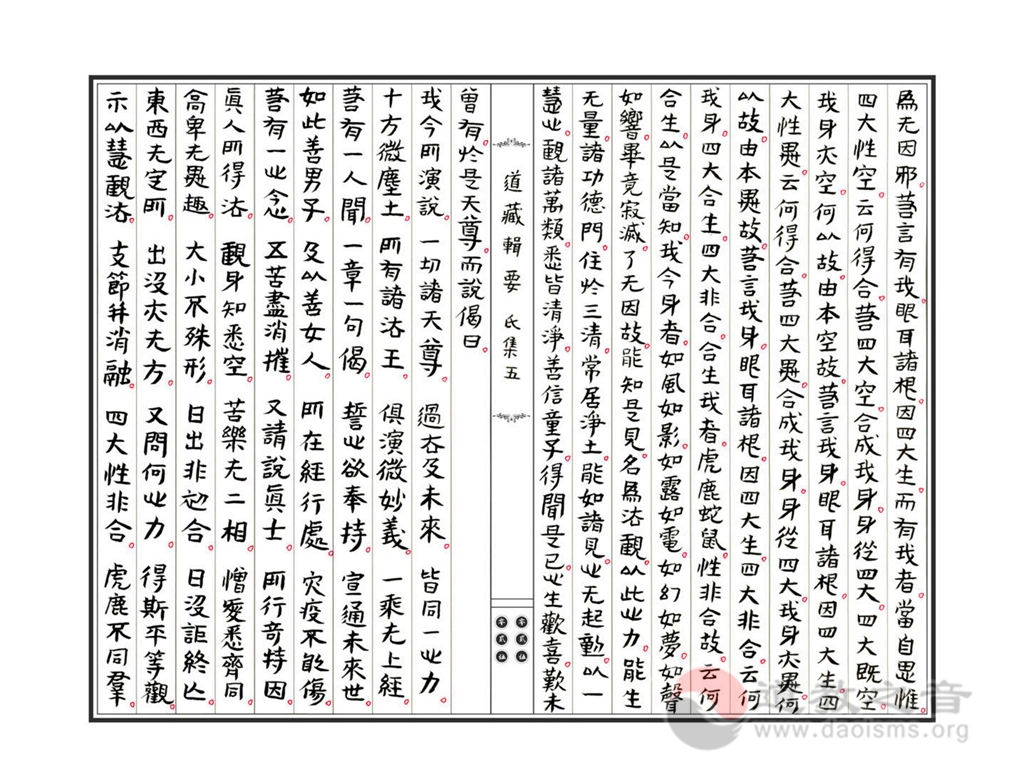 為无因邪。若言有我眼耳諸根。因四大生。而有我者。當自思惟。
四大性空。云何得合。若四大空。合成我身。身從四大。四大既空。
我身亦空。何以故。由本空故。若言我身。眼耳諸根。因四大生。四
大性異。云何得合。若四大異。合成我身。身從四大。我身亦異。何
以故。由本異故。若言我身。眼耳諸根。因四大生。四大非合。云何
我身。四大合生。四大非合。合生我者。虎鹿蛇鼠。性非合故。云何
合生。以是當知。我今身者。如風如影。如露如電。如幻如夢。如聲
如響。畢竟寂滅。了无因故。能知是見。名為法觀。以此心力。能生
无量。諸功德門。住於三清。常居淨土。能如諸見。心无起動。以一
慧心。觀諸萬類。悉皆清淨。善信童子。得聞是已。心生歡喜。歎未
曾有。於是天尊。而說偈曰。
我今所演說 一切諸天尊 過去及未來 皆同一心力
十方微塵土 所有諸法王 俱演微妙義 一乘无上經
若有一人聞 一章一句偈 誓心欲奉持 宣通未來世
如此善男子 及以善女人 所在經行處 災疫不能傷
若有一心念 五苦盡消摧 又請說真士 所行奇持因
真人所得法 觀身知悉空 苦樂无二相 憎愛悉齊同
高卑无異趣 大小不殊形 日出非初合 日沒詎終亡
東西无定所 出沒亦无方 又問何心力 得斯平等觀
示以慧觀法 支節并消融 四大性非合 虎鹿不同羣
道藏輯要 氐集五
零貳伍
零貳伍
道教之音
www.daoisms.org